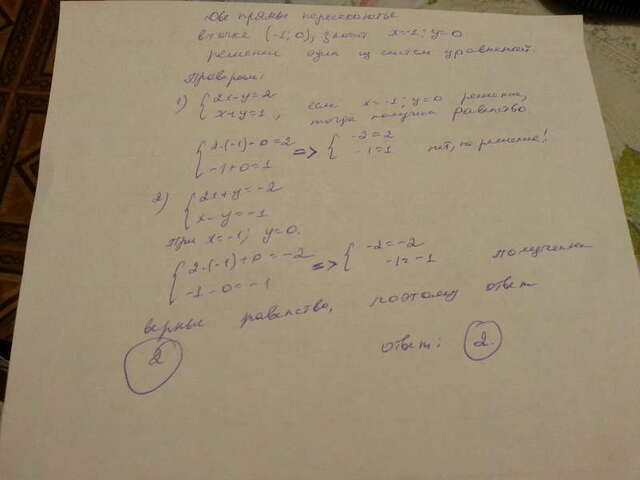 Две прямые пересекаются
в точке (-1; 0), значит x=-1; y=0
решение один из систем уравнений.
Проверим:
1) { 2x-y=2
x+y=1, если x=-1; y=0 решение,
тогда получим равенство
{ 2·(-1)+0=2 => { -2=2
-1+0=1 -1=1 нет, не решение!
2) { 2x+y=-2
x-y=-1
При x=-1; y=0.
{ 2·(-1)+0=-2 => { -2=-2
-1-0=-1 -1=-1 получили
верные равенства, поэтому ответ
2 ответ: 2.